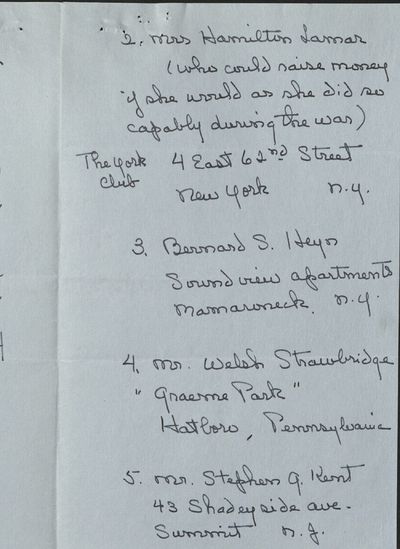 2. Mrs Hamilton Lamar
(who could raise money
if she would as she did so
capably during the war)
The York Club
4 East 62nd Street
New York N.Y.
3. Bernard S. Heyn
Soundview apartments
Mamaroneck. N.Y.
4. Mr. Welsh Strawbridge
"Graeme Park"
Hatboro, Pennsylvania
5. Mr. Stephen G. Kent
43 Shadeyside ave.
Summit N.J.